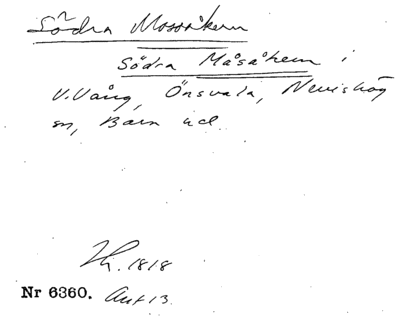 Södra Mossåkern
Södra Måsåkern i
V. Vång, Önsvala, Nevishög
sn, Bara hd.
1818
Nr 6360. Akt 13.